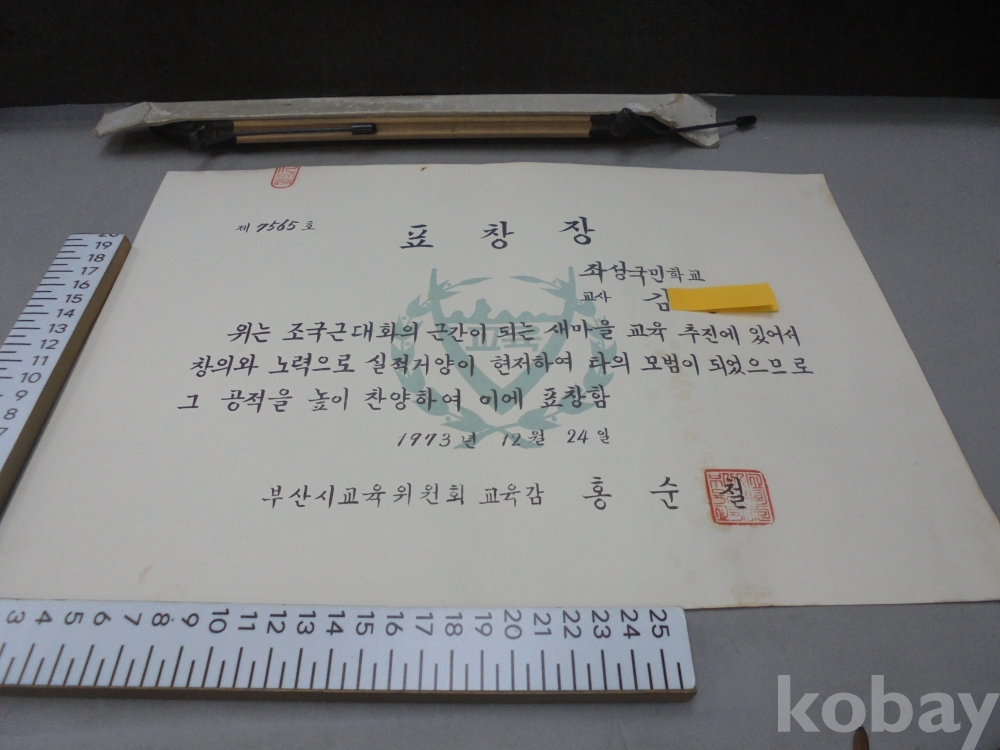 제 7565 호
표 창 장
좌성국민학교
교사 김
교육
위는 조국근대화의 근간이 되는 새마을 교육 추진에 있어서
창의와 노력으로 실적거양이 현저하여 타의 모범이 되었으므로
그 공적을 높이 찬양하여 이에 표창함
1973년 12월 24일
부산시교육위원회 교육감 홍 순 철
20
19
18
17
16
15
14
13
12
11
10
9
8
7
3 4 5 6 7 8 9 10 11 12 13 14 15 16 17 18 19 20 21 22 23 24 25
kobay